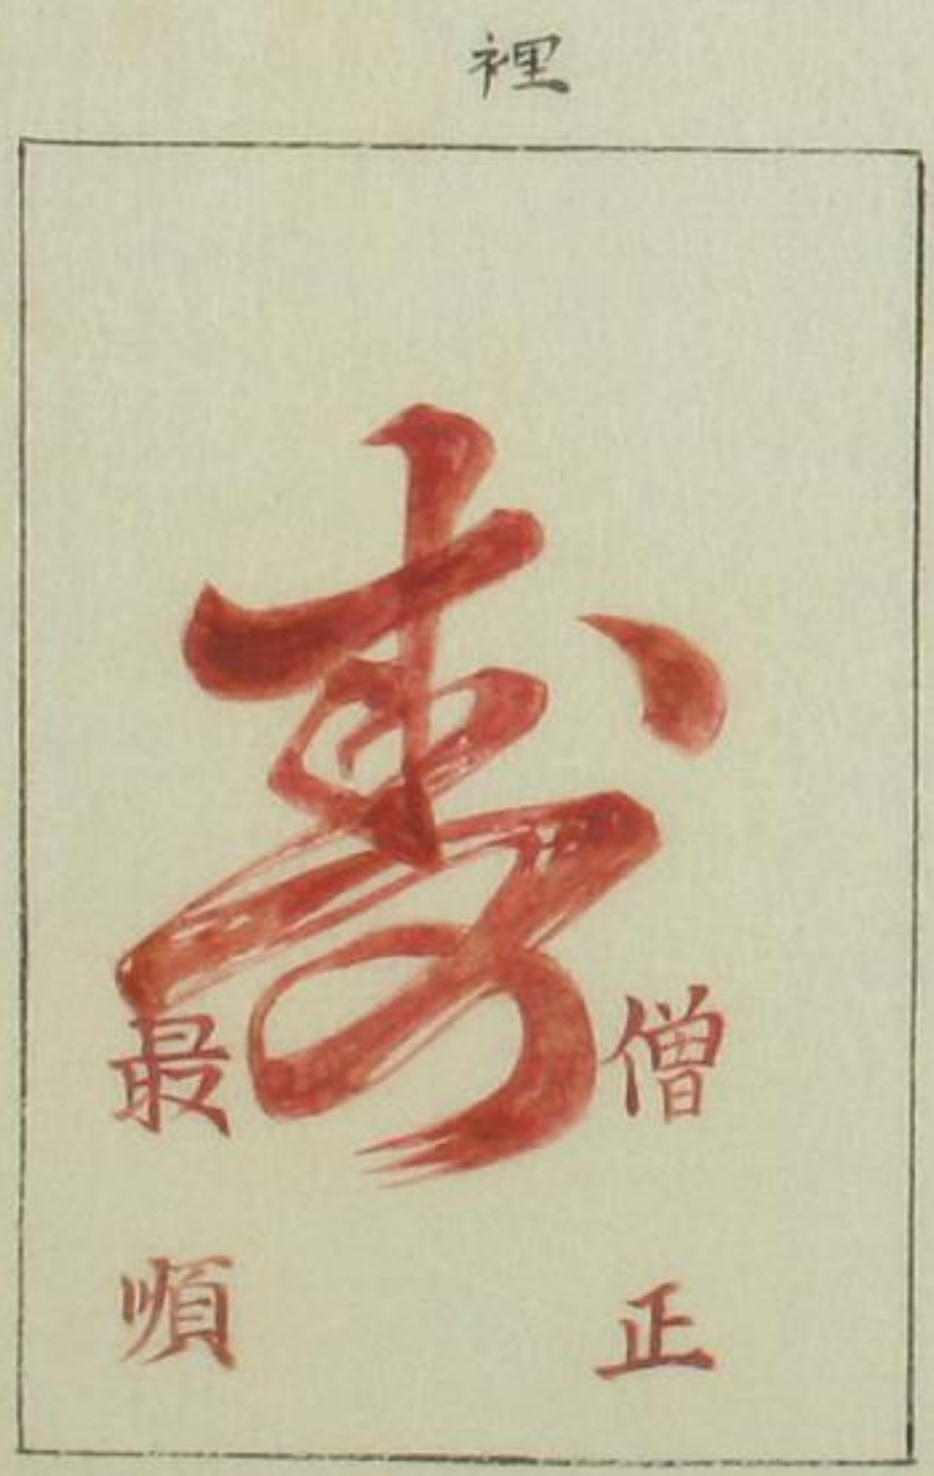 裡
壽
僧正
最順